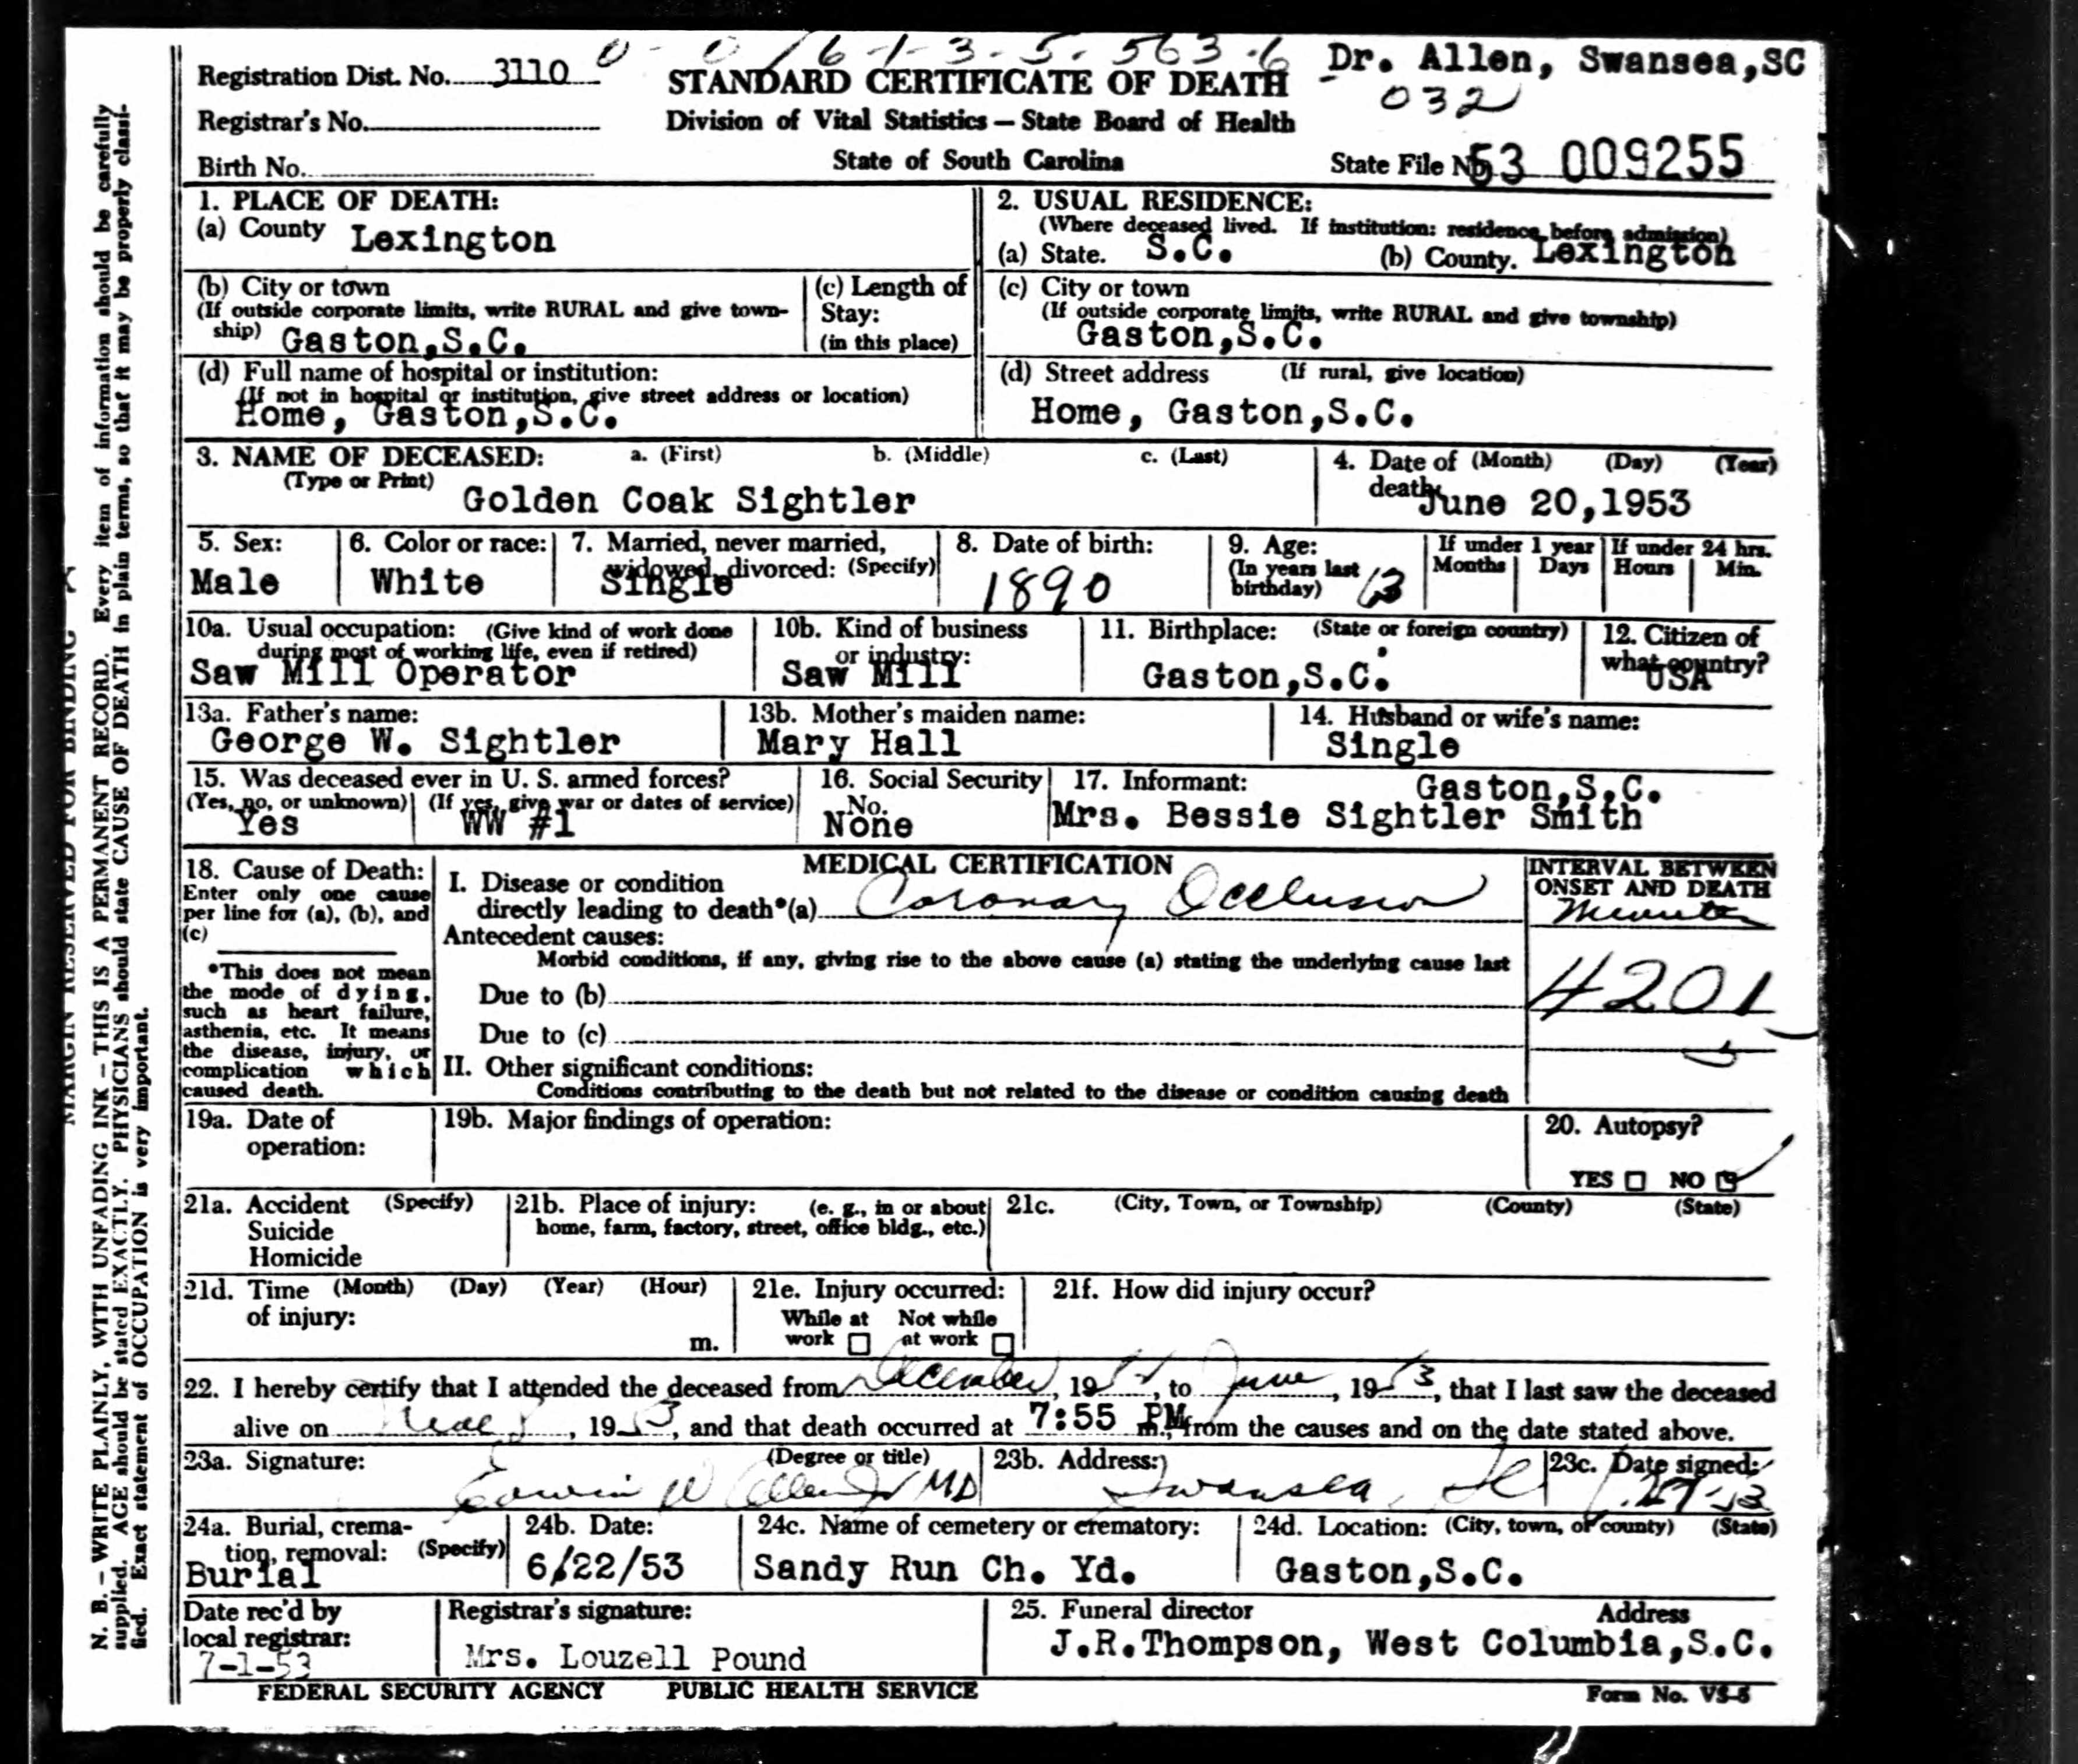 0 - 0 / 6 - 1 - 3 - 5 - 563 - 6
Dr. Allen, Swansea,SC
032
Registration Dist. No. 3110
STANDARD CERTIFICATE OF DEATH
Registrar's No.
Division of Vital Statistics — State Board of Health
Birth No.
State of South Carolina
State File No. 53 009255
1. PLACE OF DEATH:
(a) County Lexington
2. USUAL RESIDENCE:
(Where deceased lived. If institution: residence before admission)
(a) State. S.C. (b) County. Lexington
(b) City or town
(If outside corporate limits, write RURAL and give town-
ship) Gaston,S.C.
(c) Length of
Stay:
(in this place)
(c) City or town
(If outside corporate limits, write RURAL and give township)
Gaston,S.C.
(d) Full name of hospital or institution:
(If not in hospital or institution, give street address or location)
Home, Gaston,S.C.
(d) Street address (If rural, give location)
Home, Gaston,S.C.
3. NAME OF DECEASED: a. (First) b. (Middle) c. (Last)
(Type or Print)
Golden Coak Sightler
4. Date of (Month) (Day) (Year)
death: June 20,1953
5. Sex:
Male
6. Color or race:
White
7. Married, never married,
widowed, divorced: (Specify)
Single
8. Date of birth:
1890
9. Age:
(In years last
birthday) 63
If under 1 year
Months Days
If under 24 hrs.
Hours Min.
10a. Usual occupation: (Give kind of work done
during most of working life, even if retired)
Saw Mill Operator
10b. Kind of business
or industry:
Saw Mill
11. Birthplace: (State or foreign country)
Gaston,S.C.
12. Citizen of
what country?
USA
13a. Father's name:
George W. Sightler
13b. Mother's maiden name:
Mary Hall
14. Husband or wife's name:
Single
15. Was deceased ever in U. S. armed forces?
(Yes, no, or unknown) (If yes, give war or dates of service)
Yes WW #1
16. Social Security
No.
None
17. Informant: Gaston,S.C.
Mrs. Bessie Sightler Smith
18. Cause of Death:
Enter only one cause
per line for (a), (b), and
(c)
*This does not mean
the mode of dying,
such as heart failure,
asthenia, etc. It means
the disease, injury, or
complication which
caused death.
MEDICAL CERTIFICATION
I. Disease or condition
directly leading to death*(a) Coronary Occlusion
Antecedent causes:
Morbid conditions, if any, giving rise to the above cause (a) stating the underlying cause last
Due to (b)
Due to (c)
II. Other significant conditions:
Conditions contributing to the death but not related to the disease or condition causing death
INTERVAL BETWEEN
ONSET AND DEATH
Minutes
4201
19a. Date of
operation:
19b. Major findings of operation:
20. Autopsy?
YES NO
21a. Accident (Specify)
Suicide
Homicide
21b. Place of injury: (e. g., in or about
home, farm, factory, street, office bldg., etc.)
21c. (City, Town, or Township) (County) (State)
21d. Time (Month) (Day) (Year) (Hour)
of injury:
m.
21e. Injury occurred:
While at Not while
work at work
21f. How did injury occur?
22. I hereby certify that I attended the deceased from December, 19, to June, 1953, that I last saw the deceased
alive on , 1953, and that death occurred at 7:55 PM m., from the causes and on the date stated above.
23a. Signature: (Degree or title)
Edwin W Allen Jr MD
23b. Address:
Swansea, SC
23c. Date signed:
24a. Burial, crema-
tion, removal: (Specify)
Burial
24b. Date:
6/22/53
24c. Name of cemetery or crematory:
Sandy Run Ch. Yd.
24d. Location: (City, town, or county) (State)
Gaston,S.C.
Date rec'd by
local registrar:
7-1-53
Registrar's signature:
Mrs. Louzell Pound
25. Funeral director Address
J.R.Thompson, West Columbia,S.C.
FEDERAL SECURITY AGENCY PUBLIC HEALTH SERVICE
Form No. VS-5
MARGIN RESERVED FOR BINDING
N. B. – WRITE PLAINLY, WITH UNFADING INK – THIS IS A PERMANENT RECORD. Every item of information should be carefully
supplied. AGE should be stated EXACTLY. PHYSICIANS should state CAUSE OF DEATH in plain terms, so that it may be properly classi-
fied. Exact statement of OCCUPATION is very important.